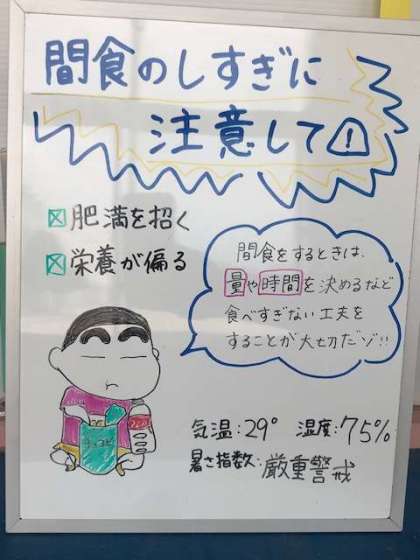 間食のしすぎに
注意して⚠
☒ 肥満を招く
☒ 栄養が偏る
間食をするときは、
量や時間を決めるなど
食べすぎない工夫を
することが大切だゾ!!
チョコビ
気温:29° 湿度:75%
暑さ指数:厳重警戒